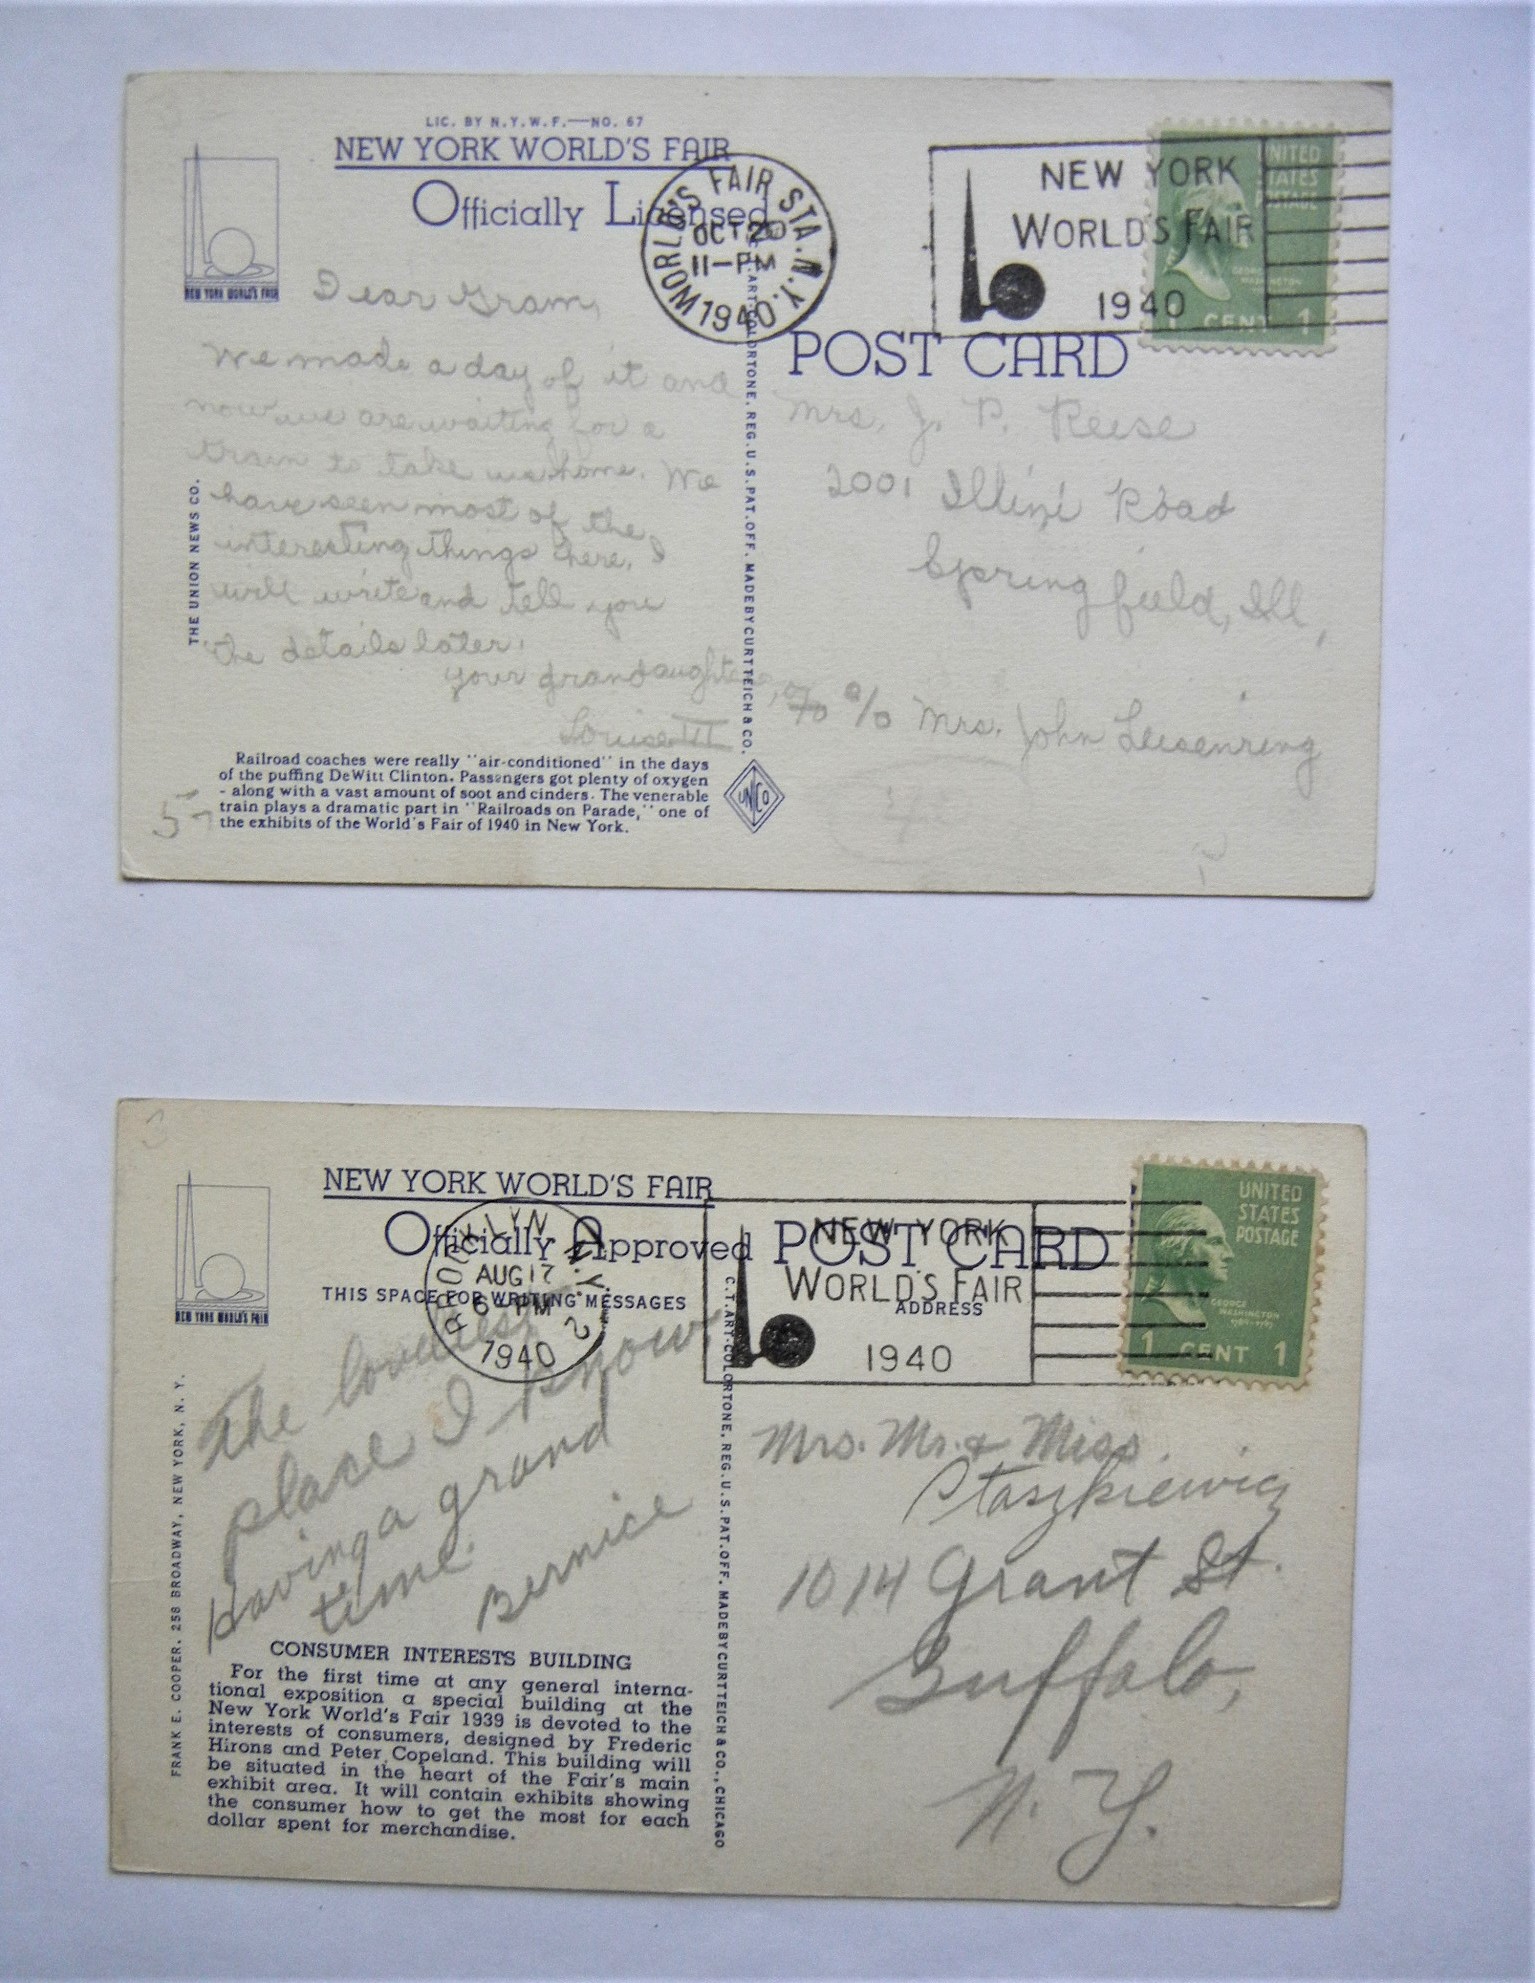 LIC. BY N.Y.W.F.—NO. 67
NEW YORK WORLD'S FAIR
Officially Licensed
NEW YORK WORLD'S FAIR
WORLD'S FAIR STA. N.Y.
OCT 20
11—PM
1940
NEW YORK
WORLD'S FAIR
1940
UNITED
STATES
POSTAGE
GEORGE
WASHINGTON
1 CENT 1
POST CARD
Dear Gram,
We made a day of it and
now we are waiting for a
train to take us home. We
have seen most of the
interesting things here. I
will write and tell you
the details later.
your grandaughter,
Louise III
Mrs. J. P. Reese
2001 Illini Road
Springfield, Ill,
% Mrs. John Leisenring
THE UNION NEWS CO.
C.T. ART-COLORTONE, REG. U.S. PAT. OFF. MADE BY CURT TEICH & CO.
Railroad coaches were really "air-conditioned" in the days
of the puffing DeWitt Clinton. Passengers got plenty of oxygen
- along with a vast amount of soot and cinders. The venerable
train plays a dramatic part in "Railroads on Parade," one of
the exhibits of the World's Fair of 1940 in New York.
UNCO
5-
NEW YORK WORLD'S FAIR
Officially Approved POST CARD
NEW YORK WORLD'S FAIR
THIS SPACE FOR WRITING MESSAGES
ADDRESS
BROOKLYN N.Y. 2
AUG 17
6-PM
1940
NEW YORK
WORLD'S FAIR
1940
UNITED
STATES
POSTAGE
GEORGE
WASHINGTON
1 CENT 1
The loudest
place I know
Having a grand
time.
Bernice
Mrs. Mr. & Miss
Ptaszkiewicz
1014 Grant St.
Buffalo,
N. Y.
FRANK E. COOPER, 258 BROADWAY, NEW YORK, N. Y.
C.T. ART-COLORTONE, REG. U.S. PAT. OFF. MADE BY CURT TEICH & CO., CHICAGO
CONSUMER INTERESTS BUILDING
For the first time at any general interna-
tional exposition a special building at the
New York World's Fair 1939 is devoted to the
interests of consumers, designed by Frederic
Hirons and Peter Copeland. This building will
be situated in the heart of the Fair's main
exhibit area. It will contain exhibits showing
the consumer how to get the most for each
dollar spent for merchandise.